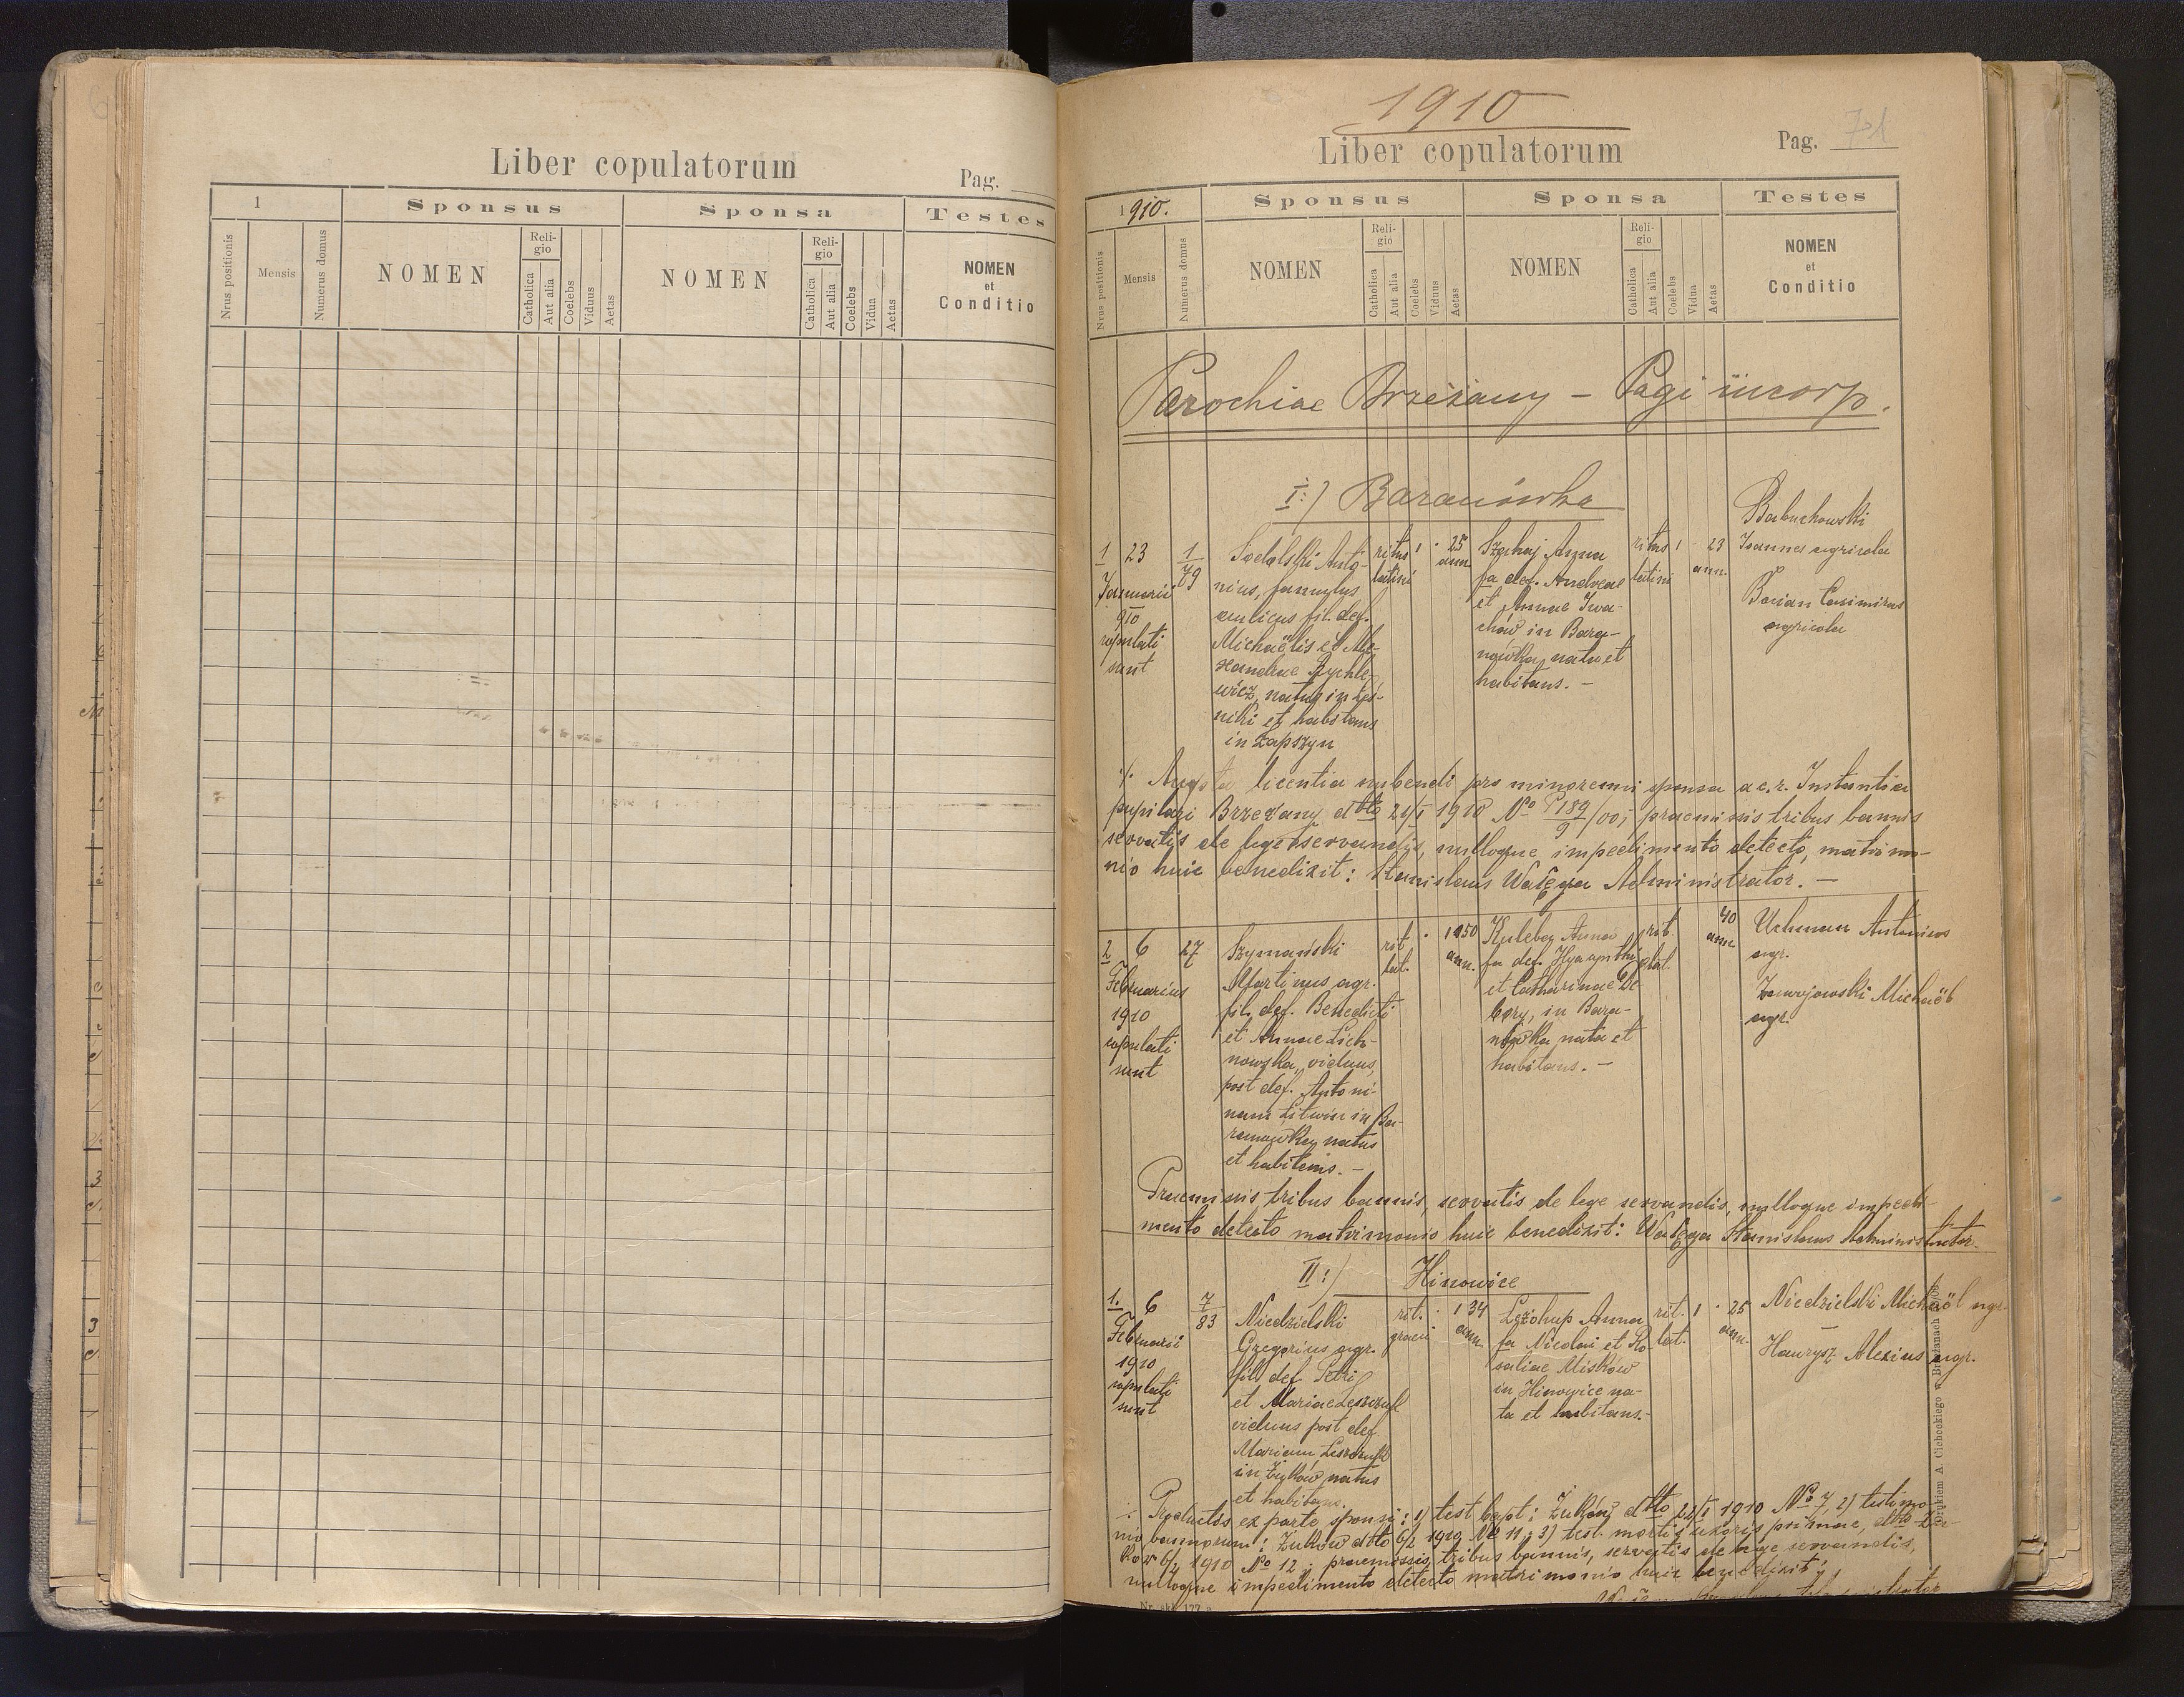 Liber copulatorum
Pag.
1
Sponsus
Sponsa
Testes
Nrus positionis
Mensis
Numerus domus
NOMEN
Religio
Catholica
Aut alia
Coelebs
Viduus
Aetas
NOMEN
Religio
Catholica
Aut alia
Coelebs
Vidua
Aetas
NOMEN
et
Conditio
1910
Liber copulatorum
Pag. 71
1910.
Sponsus
Sponsa
Testes
Nrus positionis
Mensis
Numerus domus
NOMEN
Religio
Catholica
Aut alia
Coelebs
Viduus
Aetas
NOMEN
Religio
Catholica
Aut alia
Coelebs
Vidua
Aetas
NOMEN
et
Conditio
Parochiae Brzeżany – Pagi incorp.
I:) Baranówka
1 23
Januarii
910
copulati
sunt
1
79
Sodolski Anto-
nius, famulus
aulicus fil. def.
Michaëlis et Ale-
xandrae Rychle-
wicz, natus in Leś-
niki et habitans
in Łapszyn
ritus
latini
1 · 25
ann.
Szahaj Anna
fa def. Andreae
et Annae Iwa-
chów in Bara-
nówka nata et
habitans. –
ritus
latini
1 · 23
ann.
Babuchowski
Joannes agricola
Basian Casimirus
agricola
licentia nubendi pro minorenni sponsa a c. r. Instantia
pupilari Brzeżany dtto 21/I 1910 No P 189/9 /00; praemissis tribus bannis
servatis de lege servandis, nulloque impedimento detecto, matrimo-
nio huic benedixit: Stanislaus Wałęga Administrator. –
2 6
Februarius
1910
copulati
sunt
27
Szymański
Martinus agr.
fil. def. Benedicti
et Annae Lich-
nowska, viduus
post def. Antoni-
nam Litwin in Ba-
ranówka natus
et habitans. –
rit.
lat.
· 1 50
ann.
Kuleba Anna
fa def. Hyacynthi
et Catharinae De-
bery, in Bara-
nówka nata et
habitans. –
rit
lat.
40
ann.
Uchman Antonius
agr.
Zawojowski Michaël
agr.
Praemissis tribus bannis, servatis de lege servandis, nulloque impedi-
mento detecto matrimonio huic benedixit: Wałęga Stanislaus Administrator.
II:) Hinowice
1. 6
Februarii
1910
copulati
sunt
7
83
Niedzielski
Gregorius agr.
fil. def. Petri
et Mariae Leszczuk
viduus post def.
Mariam Leszczuk
in Żuków natus
et habitans.
rit.
graeci
· 1 34
ann.
Leżohup Anna
fa Nicolai et Ro-
saliae Miskow
in Hinowice na-
ta et habitans.–
rit.
lat.
1 · 25
ann.
Niedzielski Michaël agr.
Hawrysz Alexius agr.
Productis ex parte sponsi: 1) test. bapt: Żuków dtto 22/I 1910 No 7, 2) testimo-
nio bannorum: Żuków dtto 6/2 1910 No 11; 3) test. mortis uxoris primae, dtto Żu-
ków 6/2 1910 No 12; praemissis tribus bannis, servatis de lege servandis,
nulloque impedimento detecto matrimonio huic benedixit: